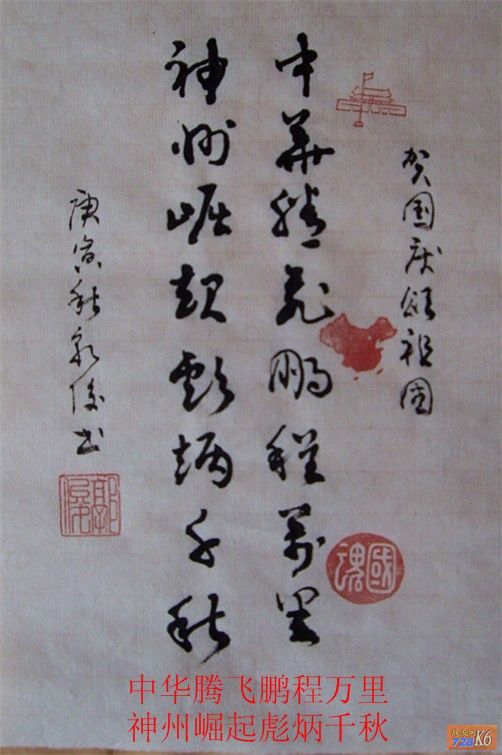 贺国庆颂祖国
中華腾飛鹏程萬里
神州崛起彪炳千秋
庚寅秋郭俊书
國魂
郭俊
中华腾飞鹏程万里
神州崛起彪炳千秋
728 K6